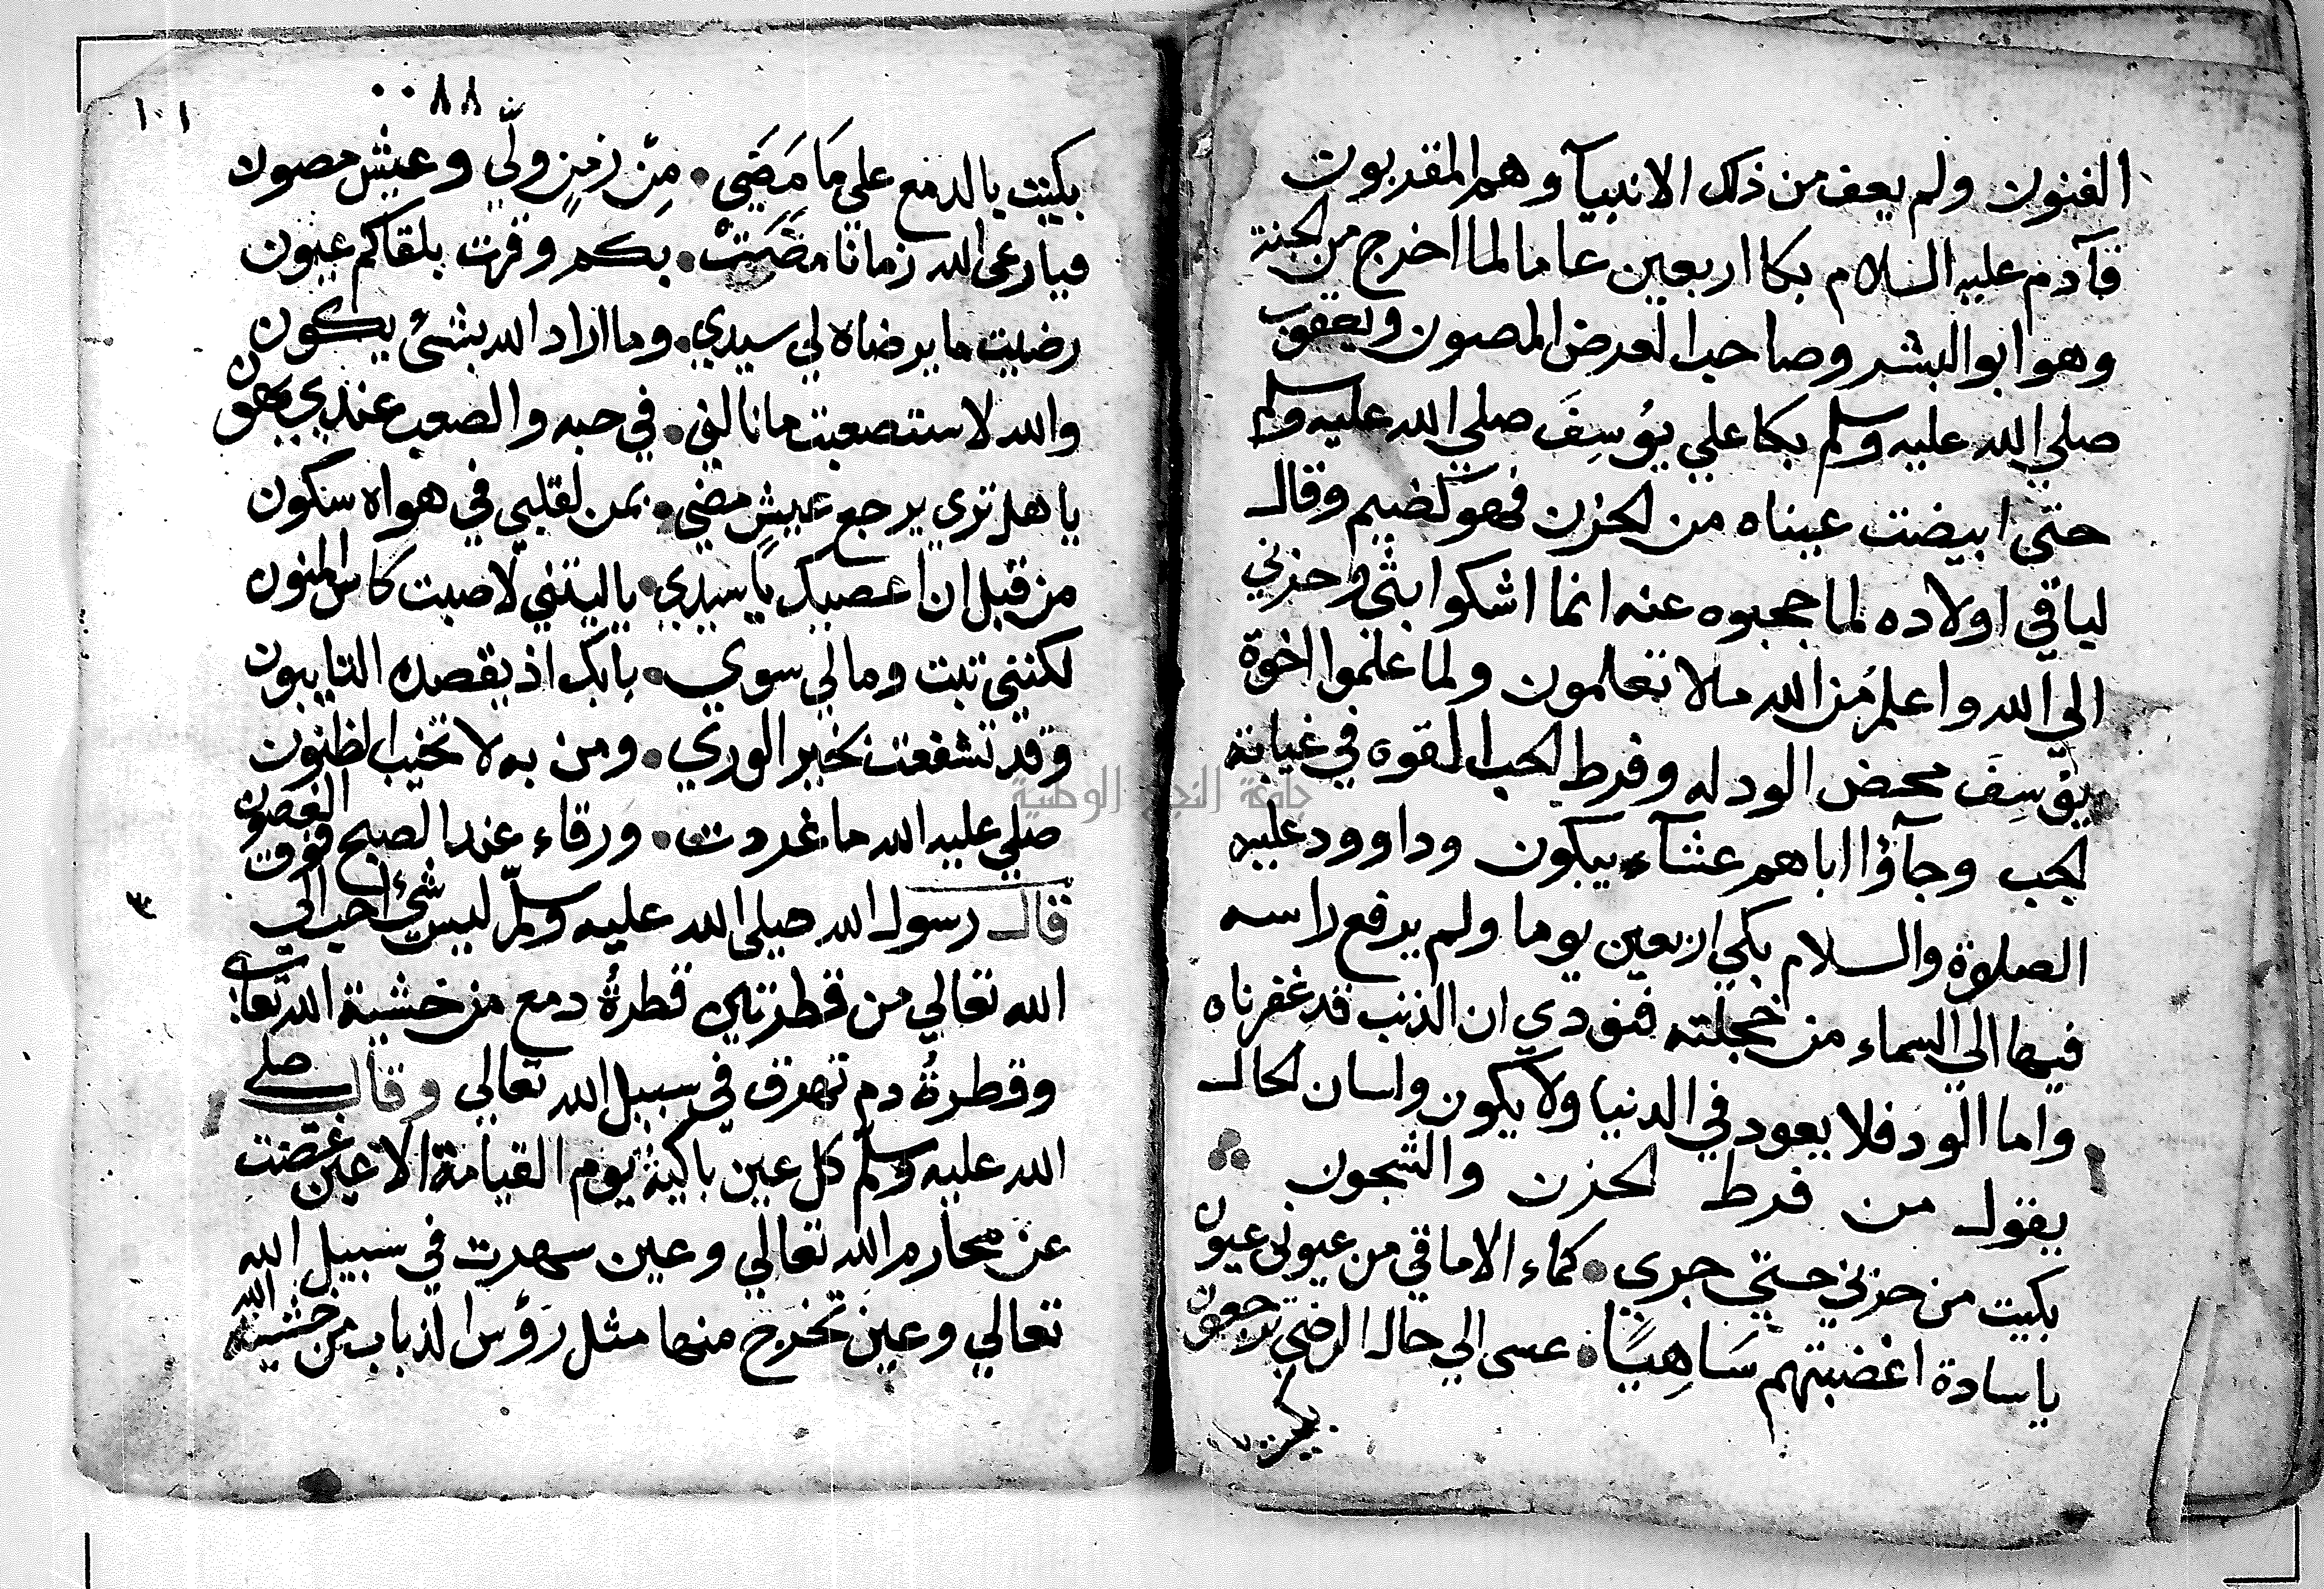 الفنون ولم يعف من ذلك الانبيآ وهم المقربون
فآدم عليه السلام بكا اربعين عاما لما اخرج من الجنة
وهو ابو البشر وصاحب العرض المصون ويعقوب
صلي الله عليه وسلم بكا علي يُوسِفَ صلي الله عليه وسلم
حتى ابيضت عيناه من الحزن فهو كظيم وقال
لباقي اولاده لما حجبوه عنه انما اشكوا بثي وحزني
الي الله واعلم من الله ما لا تعلمون ولما علموا اخوة
يوسِفَ محض الود له وفرط الحب القوه في غيابة
الجب وجآؤا اباهم عشآء يبكون وداوود عليه
الصلوة والسلام بكي اربعين يوما ولم يرفع راسه
فيها الي السماء من خجلته فنودي ان الذنب قد غفرناه
واما الود فلا يعود في الدنيا ولا يكون ولسان الحال
يقول من فرط الحزن والشجون
بكيت من حزني حتي جري . كماء الاماقي من عيوني عيون
يا سادة اغضبتهم سَاهِيًا . عسى الي حال الرضي ترجعون
بكيت
٠٠٨٨
١٠١
بكيت بالدمع علي مَا مَضَي . مِنْ زمنٍ ولّي وعيش مصون
فيا رعى الله زمانا مضَتْ . بكم وقرت بلقاكم عيون
رضيت ما يرضاه لي سيدي . وما اراد الله بشئ يكون
والله لا ستصعبت ما نالني . في حبه والصعب عندي يهون
يا هل تري يرجع عيشٍ مضي . بمن لقلبي في هواه سكون
من قبل ان اعصيك يا سيدي . يا ليتني لاصبت كاس المنون
لكنني تبت وما لي سوي . بابك اذ يقصده التايبون
وقد تشفعت بخير الوري . ومن به لا تخيب الظنون
صلي عليه الله ما غردت . وَرقاء عند الصبح فوق الغصون
قال رسول الله صلى الله عليه وسلّم ليس شئ احب الي
الله تعالي من قطرتين قطرةُ دمع من خشية الله تعالى
وقطرةُ دم تهرق في سبيل الله تعالي وقال صلى
الله عليه وسلم كل عين باكيةُ يوم القيامة الا عين غضت
عن محارم الله تعالي وعين سهرت في سبيل الله
تعالي وعين تخرج منها مثل رَؤس الذباب من خشية الله
جامعة النجاح الوطنية